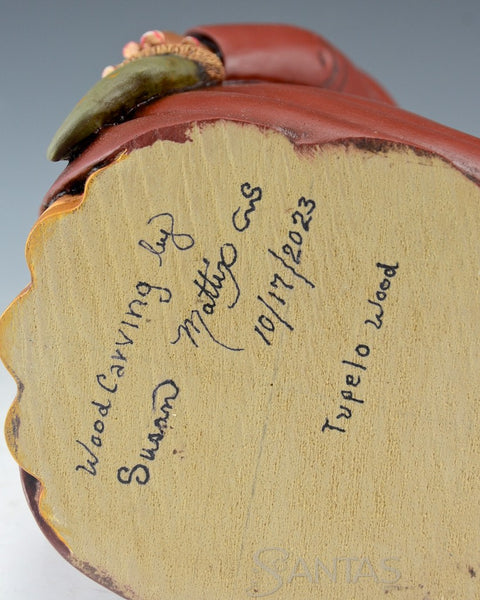 Wood Carving by
Susan Mattix CMS
10/17/2023
Tupelo Wood
SCANTAS